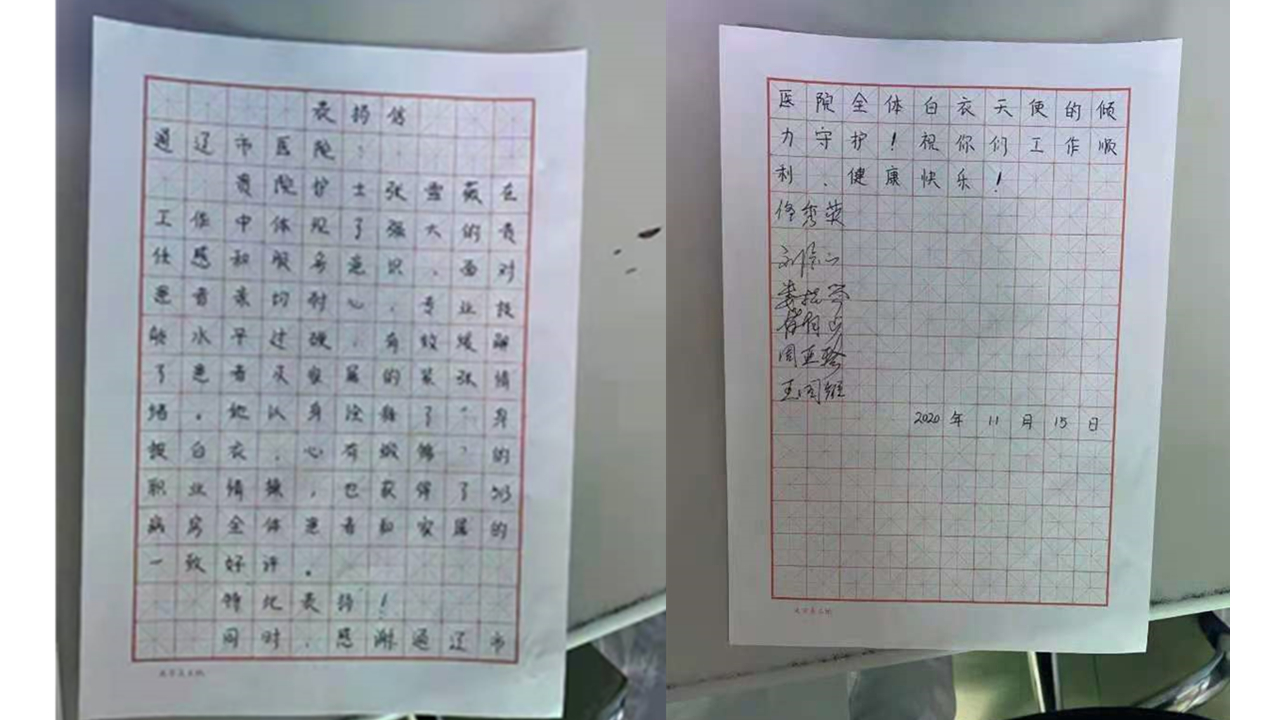 表扬信
通辽市医院：
贵院护士张雪薇在
工作中体现了强大的责
任感和服务意识，面对
患者亲切耐心，专业技
能水平过硬，有效缓解
了患者及家属的紧张情
绪。她以身诠释了“身
披白衣，心有煅锦”的
职业情操，也获得了513
病房全体患者和家属的
一致好评。
特此表扬！
同时，感谢通辽市
医院全体白衣天使的倾
力守护！祝你们工作顺
利、健康快乐！
佟秀英
周亚
王周
2020年11月15日